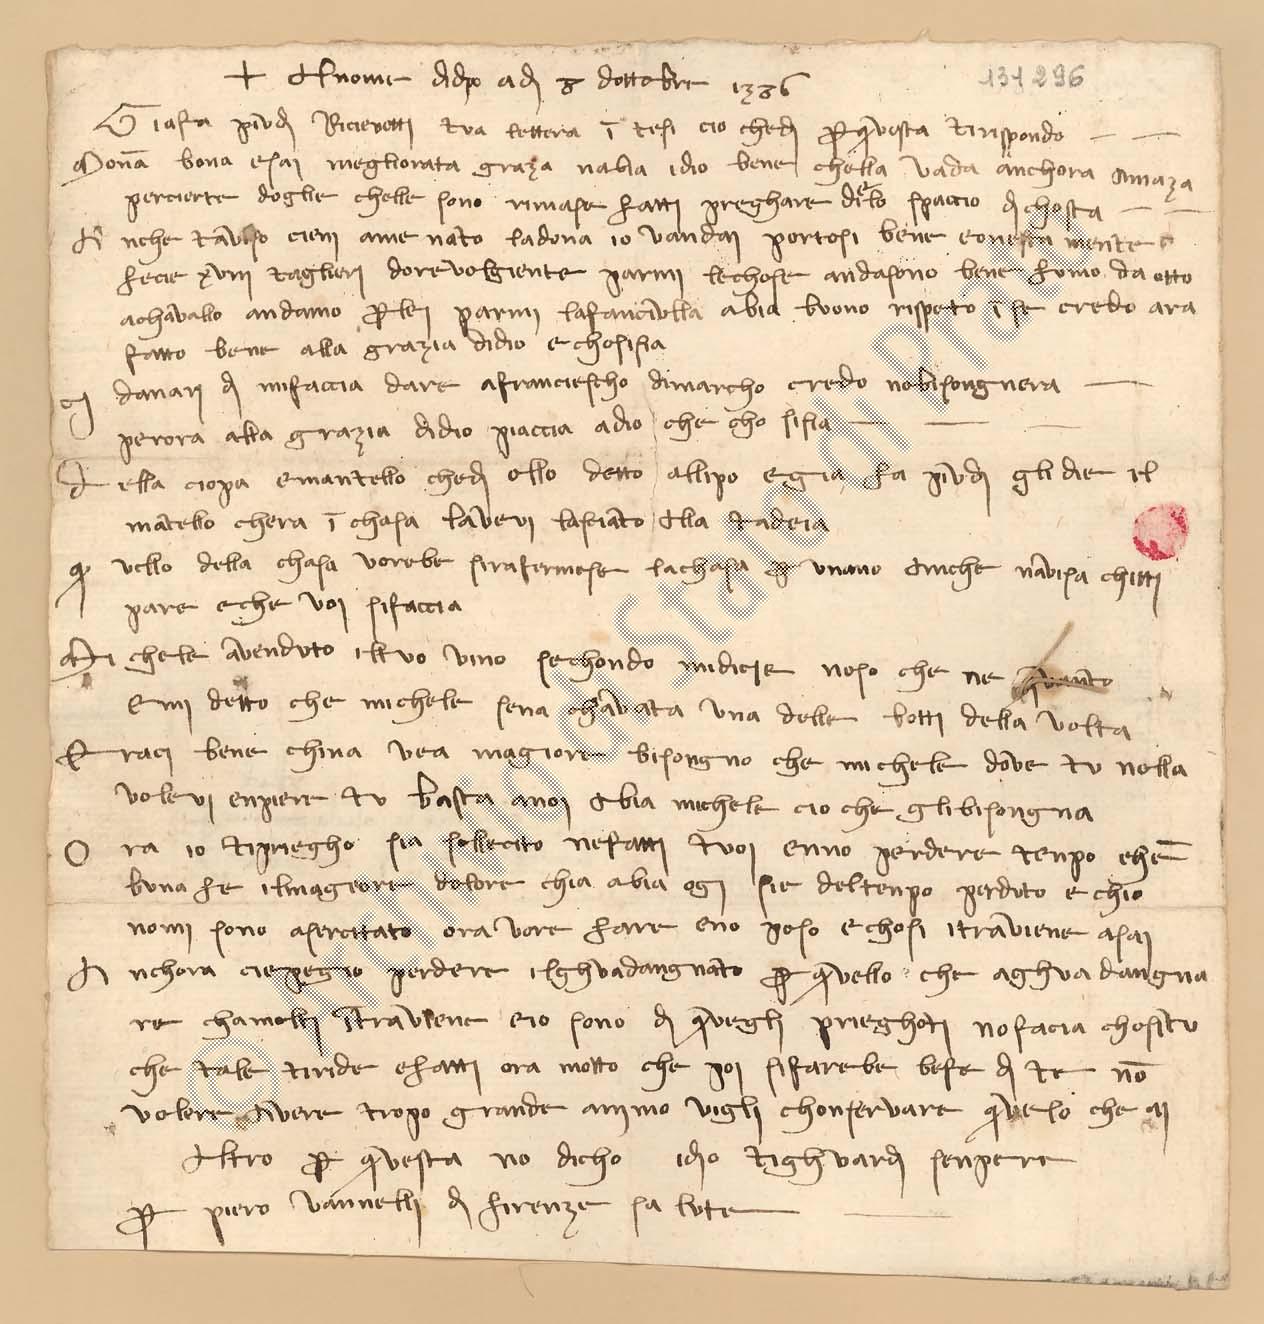 + Al nome didio adi 8 dottobre 1386
131296
Giafa piudi Ricievetti tua lettera ī tesi cio chedi p questa tirispondo
Monā bona esai megliorata graza nabia idio bene chella vada anchora amaza
percierte doglie chelle sono rimase fatti preghare dello spaccio di chosta
A nche tāviso cieni ame nato ladona io vandai portosi bene eonesta mente
fecie xviii taglieri dorevolgiente parmi lechose andasono bene fumo da otto
achāvallo andamo p lei parmi lafanciulla abia buono rispeto ī se credo ara
fatto bene alla grazia didio echosisia
danari di mifaccia dare afranciescho dimarcho credo nobisongnera
perora alla grazia didio piaccia adio che cho sisia
D ella ciopa emantello chedi ollo detto allipo egia fa piudi gli die il
mātello chera ī chasa lavevi lasciato alla tadeia
q uello della chasa vorebe sirafermase lachasa p unano anche navisa chitti
pare eche voi sifaccia
Mi chele avenduto iltuo vino sechondo midicie noso che ne quanto
emi detto che michele sena chavata una delle botti della volta
E raci bene china vea magiore bisongno che michele dove tu nolla
volevi enpiere tu basta anoi abia michele cio che glibisongna
O ra io tipriegho sia sollecito nefatti tuoi enno perdere tenpo chē
buna fe ilmageore dolore chia abia ogi sie deltenpo perduto echio
nomi sono asercitato ora vore fare eno poso echosi itraviene asai
A nchora ciepegio perdere ilghuadangnato p quello che aghuadangna
re chamolti ītraviene eio sono di quegli prieghoti nofacia chositu
che tale tiride efatti ora motto che poi sifarebe befe di te nō
volere avere tropo grande animo vigli chonservare quelo che ai
Altro p questa no dicho idio tighuardi senpere
p piero vannelli di firenze salute